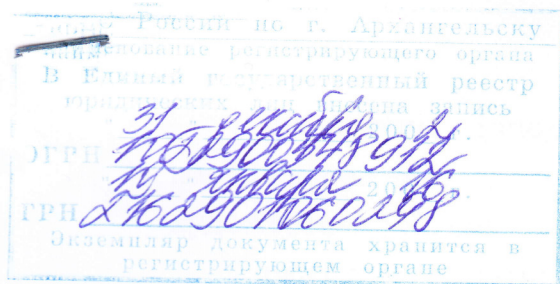 России по г. Архангельску
регистрирующего органа
В Единый государственный реестр
юридических лиц внесена запись
31 декабря 2
ОГРН
10 января 2016 г.
ГРН 2162901060298
Экземпляр документа хранится в
регистрирующем органе